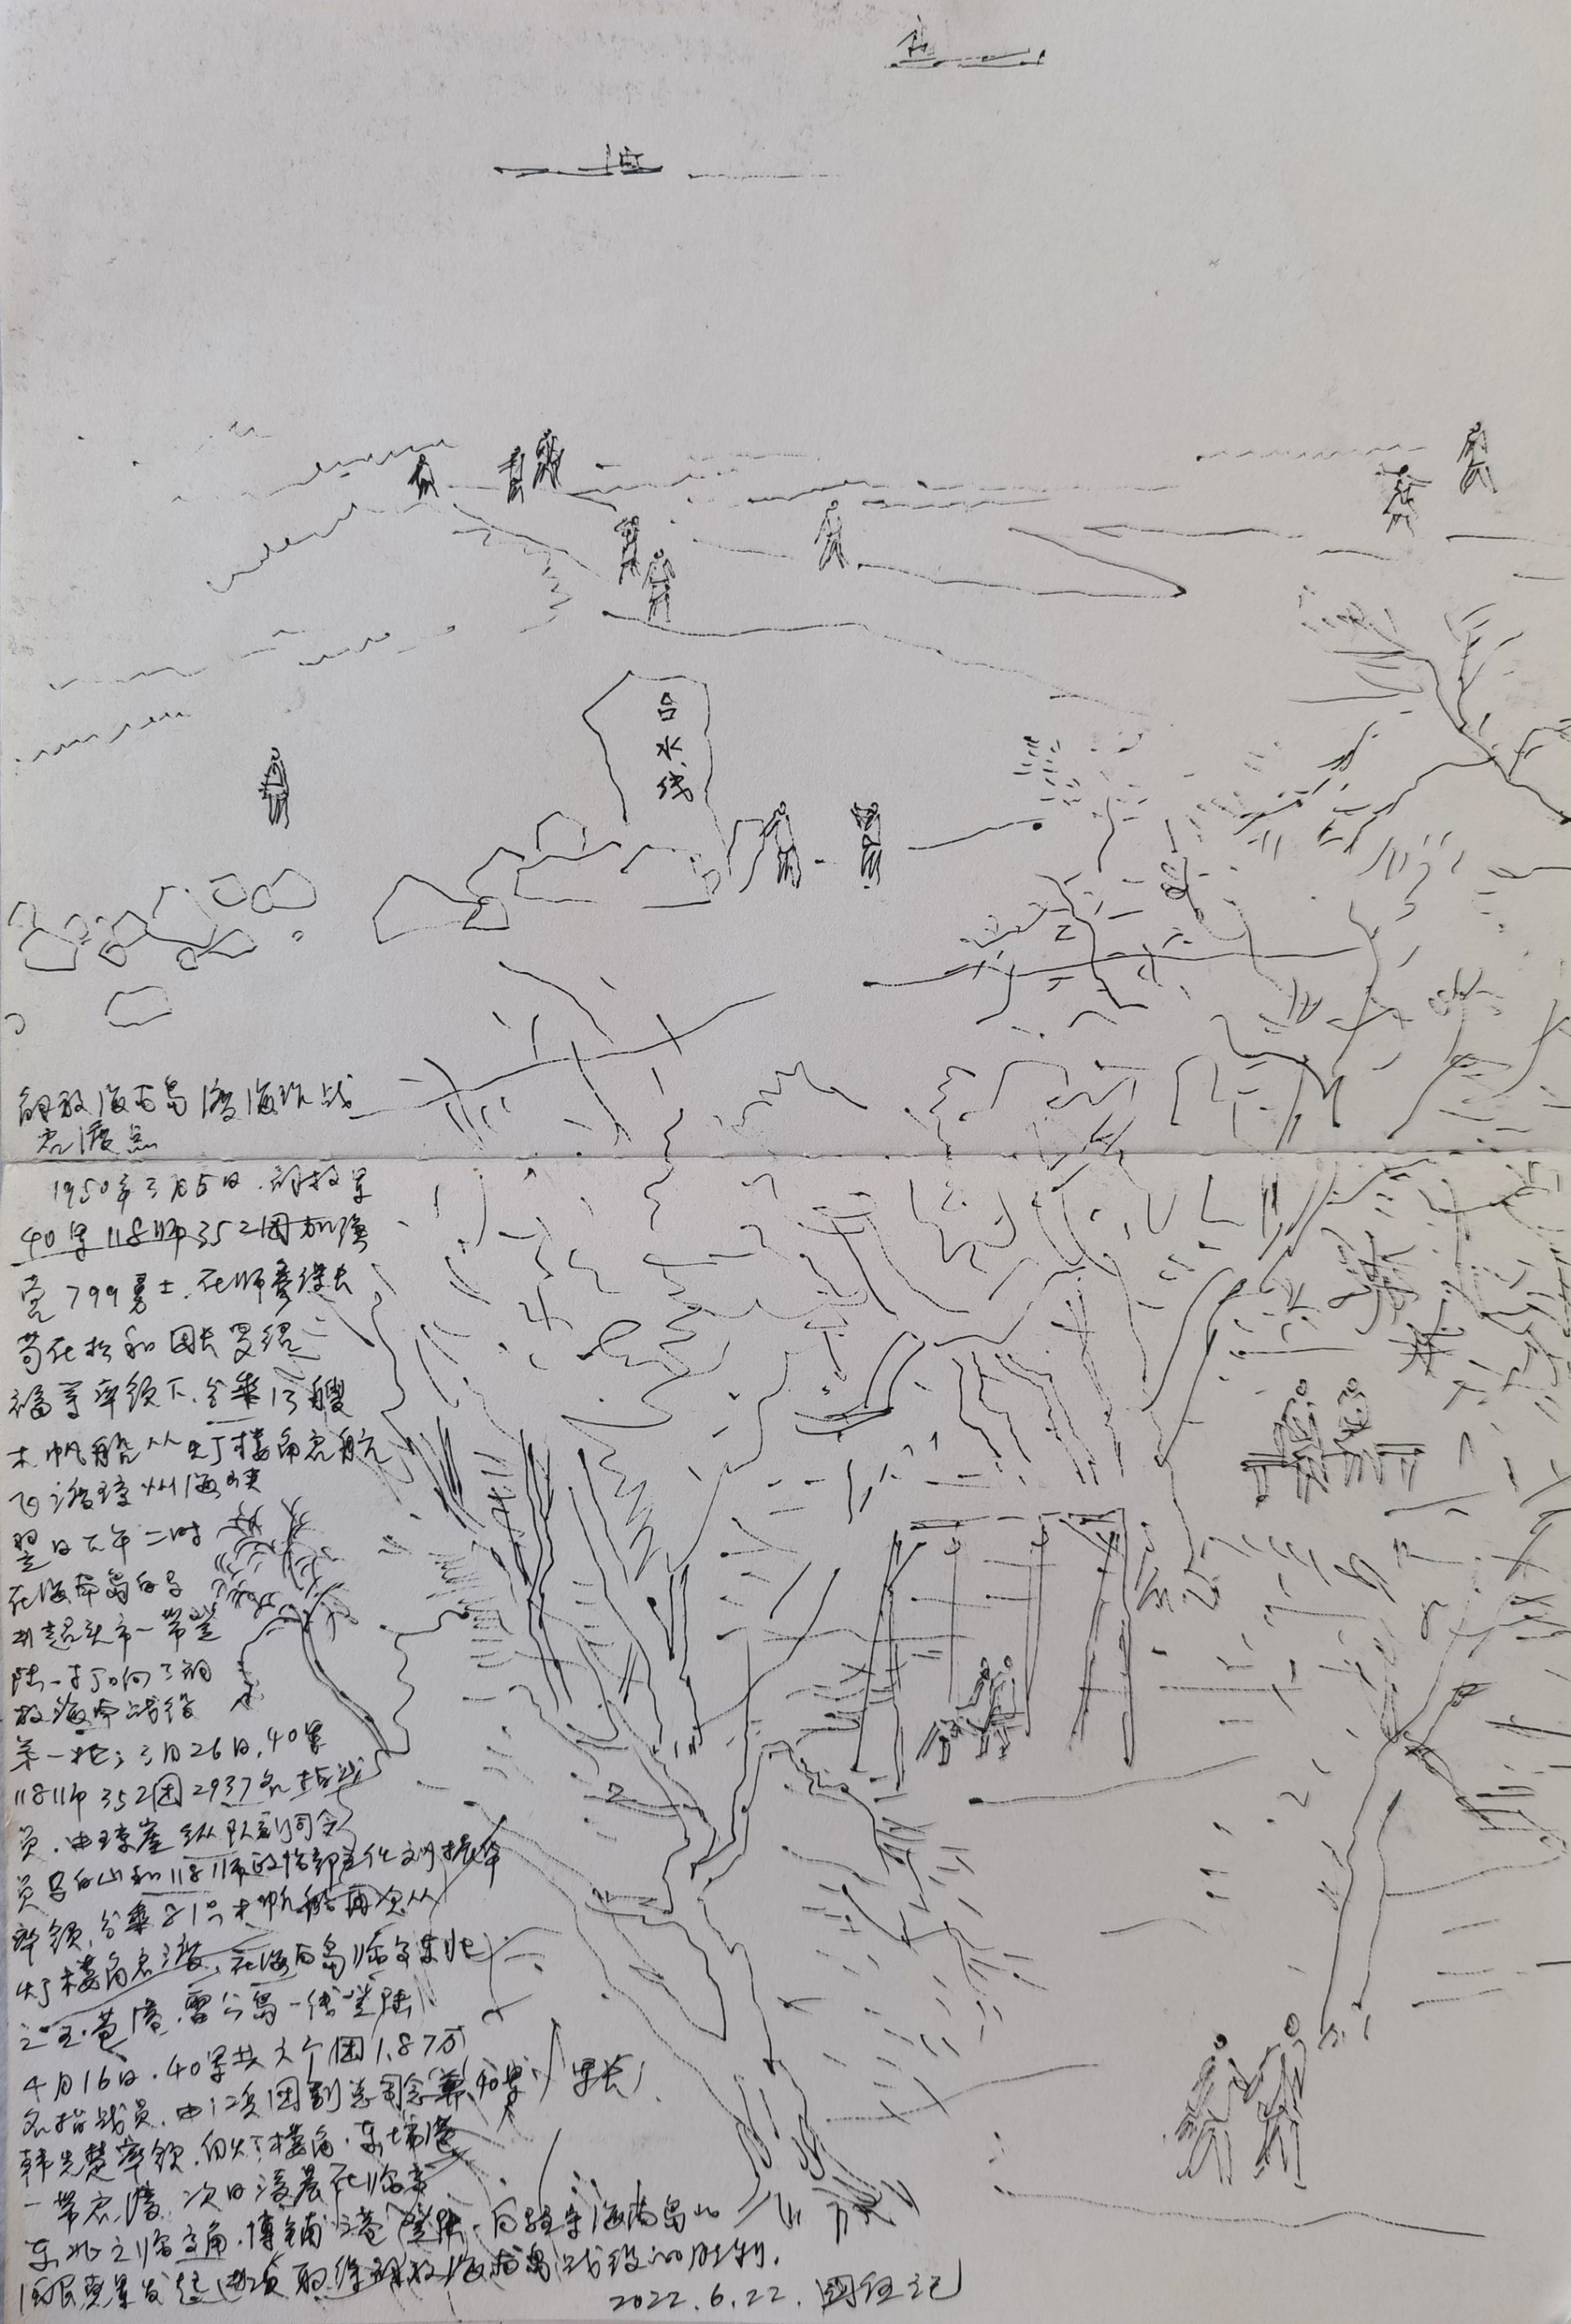 合
水
线
解放海南岛渡海作战
启渡点
1950年3月5日.解放军
40军118师352团加强
营799勇士.在师参谋长
苟在松和团长罗绍
福等率领下.分乘13艘
木帆船从灯楼角启航
飞渡琼州海峡
翌日下午二时
在海南岛白马
井超头市一带登
陆.打响了解
放海南战役
第一枪;3月26日.40军
118师352团2937名指战
员.由琼崖纵队副司令
员马白山和118师政治部主任刘振华
率领.分乘81只木帆船再次从
灯楼角启渡.在海南岛临高东北
之玉苞港.雷公岛一线登陆
4月16日.40军共六个团1.87万
名指战员.由12兵团副司令兼40军军长
韩先楚率领.自灯楼角.东场港
一带启渡.次日凌晨在临高
东北之临高角.博铺港登陆.向驻守海南岛的
国民党军发起进攻取得解放海南岛战役的胜利.
2022.6.22.国钰记